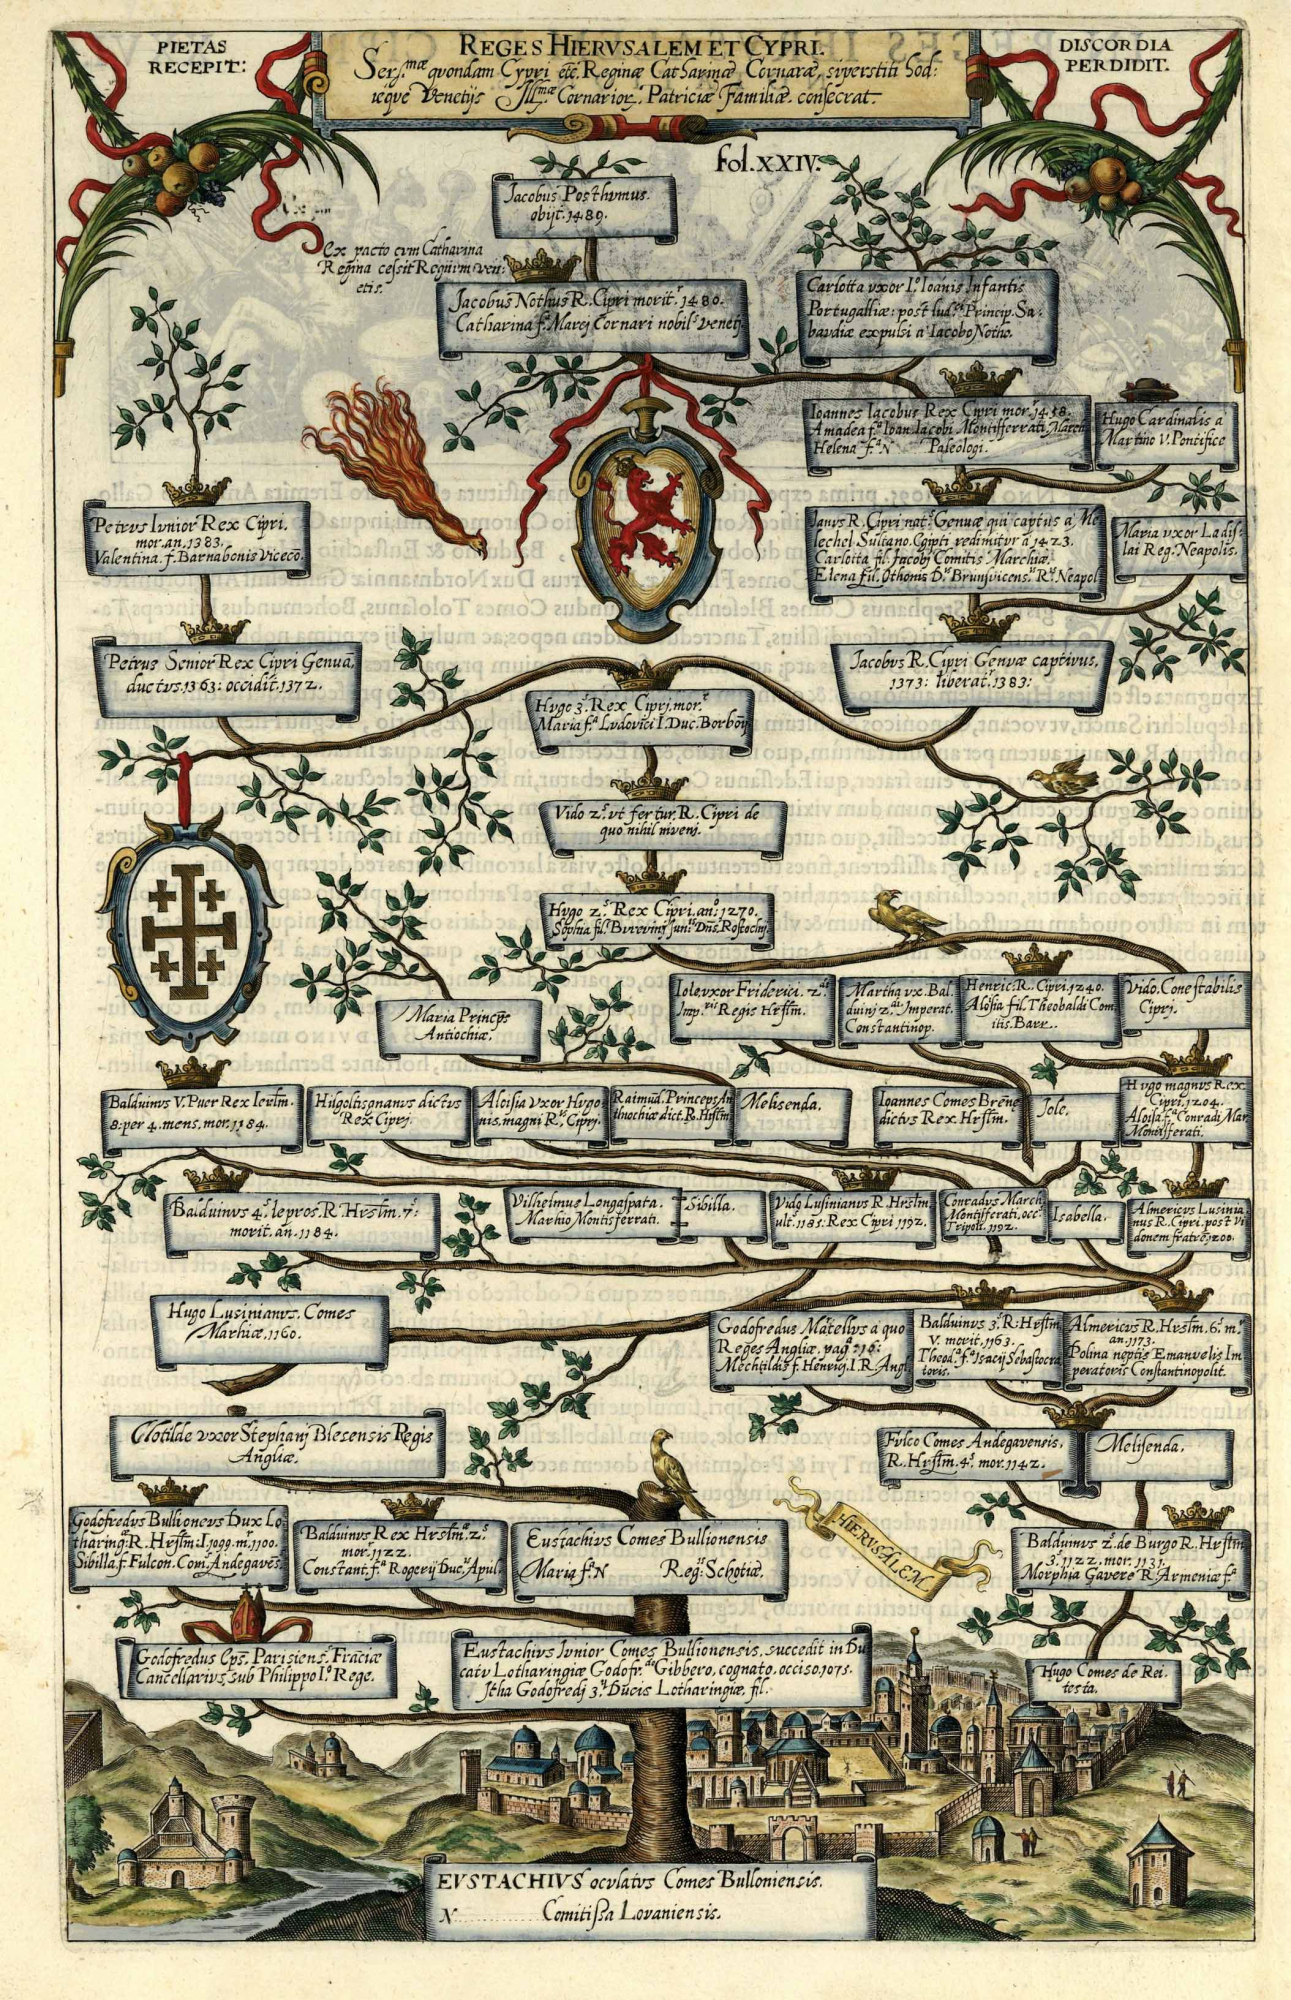 PIETAS
RECEPIT:
REGES HIERVSALEM ET CYPRI.
Ser.mæ qvondam Cypri etc. Reginæ Catharinæ Cornaræ, sivperstiti hod:
ieqve Venetijs Ill.mæ Cornarior. Patriciæ Familiæ. consecrat.
DISCORDIA
PERDIDIT.
fol. XXIV.
Jacobus Posthvmus.
obijt. 1489.
ex pacto cvm Catharina
Regina cessit Regnvm ven:
etis.
Jacobus Nothus R. Cipri morit.r 1480.
Catharina f. Marci Cornari nobil.s Venetj
Carlotta vxor I.o Ioanis Infantis
Portugalliæ: post Princip. Sa-
baudiæ expulsi a Iacobo Notho.
Ioannes Iacobus Rex Cipri mor.r 1458.
Amadea f.a Ioan Iacobi Montisferrati March
Helena f.a N Paleologi.
Hugo Cardinalis a
Martino V. Pontifice
Petrvs Ivnior Rex Cipri.
mor. an. 1383.
Valentina. f. Barnabonis Viceco.
Janus R. Cipri nat.s Genuæ qui captus a Me
lechel Sultano. Egipti redimitvr a 1423.
Carlotta fil. Jacobi Comitis Marchiæ.
Elena fil. Othonis D. Brunsvicens. R. Neapol
Maria vxor Ladis-
lai Reg. Neapolis.
Petrus Senior Rex Cipri Genua.
dvctvs. 1363: occidit. 1372.
Hvgo 3.s Rex Cipri. mor.r
Maria f.a Lvdovici I. Duc. Borboñ
Jacobvs R. Cipri Genvæ captivus.
1373: liberat.r 1383:
Vido 2.s vt fertur. R. Cipri de
quo nihil inveni.
Hvgo 2.s Rex Cipri. an.o 1270.
Sophia fil.
Maria Princ̃ps
Antiochiæ.
Iole vxor Friderici. 2.di
Imp. Regis Hrslm.
Martha vx. Bal.
duini 2.di Imperat.
Constantinop.
Henric. R. Cipri. 1240.
Alosia fil. Theobaldi Com
itis. Barr.
Vido. Conestabilis
Cipri.
Balduinus V. Puer Rex Ierslm.
8. per 4. mens. mor. 1184.
dictvs
Rex Cipri.
Aloisia vxor Hvgo
nis. magni R. Cipri.
Raimūd. Princeps An
thiochiæ dict. R. Hrslm
Melisenda.
Ioannes Comes Brene
dictvs Rex Hrslm.
Jole.
Hvgo magnvs Rex
Cipri. 1204.
Aloisia f.a Conradi Mar.
Montisferati.
Balduinvs 4.s lepros. R. Hrslm. 7.s
morit. an. 1184.
Vilhelmus Longaspata.
Marhio Montisferrati.
Sibilla.
Vido Lusinianvs R. Hrslm
vlt.s 1185: Rex Cipri 1192.
Conradvs March
Montisferati. occ.
Tripoli. 1192.
Isabella.
Almericvs Lusinia.
nus R. Cipri. post Vi
donem fratrē. 1200.
Hugo Lusinianvs. Comes
Marhiæ. 1160.
Godofredus Matellvs a quo
Reges Angliæ. pag. 16:
Mechtildis f. Henrici. I. R. Angl
Balduinvs 3.s R: Hrslm
V. morit. 1163.
Theod. f.a Isacij Sebastocra
toris.
Almericvs R. Hrslm. 6.s m.r
an. 1173.
Polina neptis Emanvelis Im
peratoris Constantinopolit.
Clotilde vxor Stephanj Blesensis Regis
Angliæ.
Fvlco Comes Andegavensis.
R. Hrslm. 4.s mor. 1142.
Melisenda.
Godofredvs Bullionevs Dux Lo
tharing. R. Hrslm: I. 1099. m. 1100.
Sibilla. f. Fulcon. Com. Andegavēs
Balduinus Rex Hrslm. 2.s
mor. 1122.
Constant. f.a Rogerij Duc. Apul.
Eustachius Comes Bullionensis
Maria f.a N Reg. Schotiæ.
HIERVSALEM.
Balduinus 2.s de Burgo R. Hrslm
3.s 1122. mor. 1131.
Morphia Gavere R. Armeniæ f.a
Godofredus Eps. Parisiens. Franciæ
Cancellarivs sub Philippo I.o Rege.
Eustachivs Ivnior Comes Bullionensis. svccedit in Du
catv Lotharingiæ Godofr. Gibbero, cognato. occiso. 1075.
Itha Godofredj 3. Ducis Lotharingiæ. fil.
Hugo Comes de Rei.
testa.
EVSTACHIVS ocvlatvs Comes Bulloniensis.
N............ Comitissa Lovaniensis.